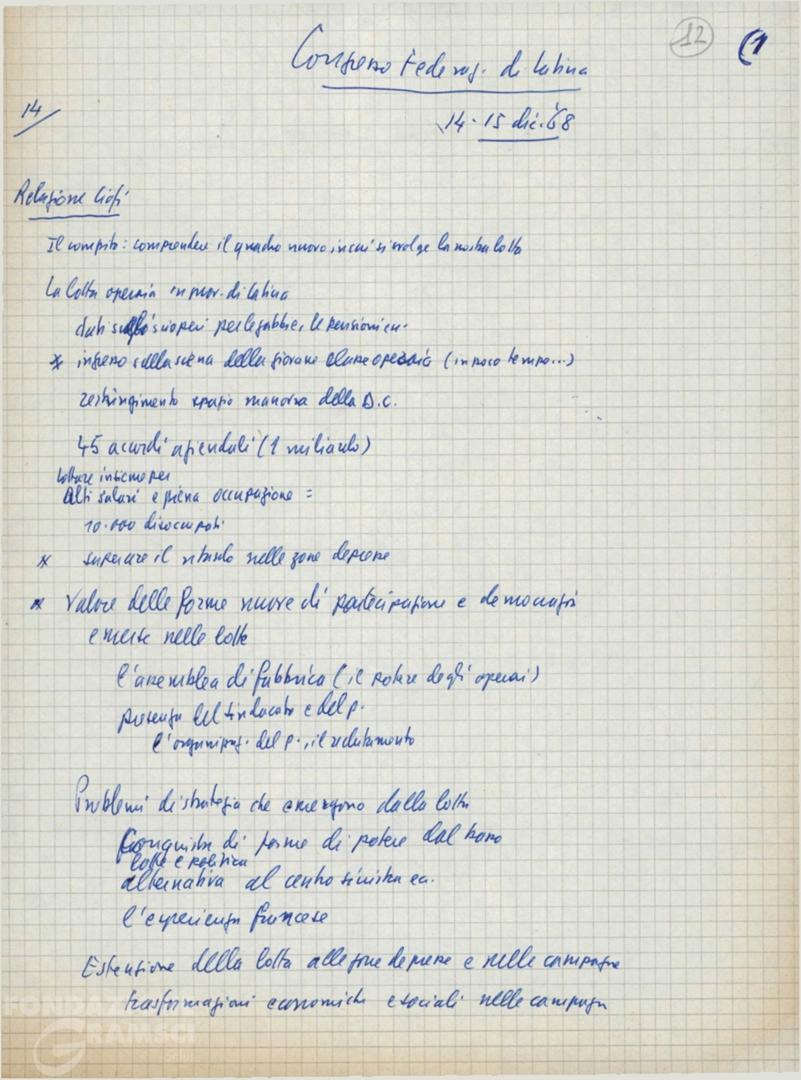 12 (1
Congresso Federaz. di Latina
14-15 dic. '68
14/
Relazione
Il compito: comprendere il quadro nuovo in cui si svolge la nostra lotta
La lotta operaia in prov. di Latina
dati sugli scioperi per le gabbie, le pensioni ec.
* ingresso sulla scena della giovane classe operaia (in poco tempo...)
restringimento spazio manovra della D.C.
45 accordi aziendali (1 miliardo)
lottare insieme per
Alti salari e piena occupazione =
10.000 disoccupati
* superare il ritardo nelle zone depresse
* Valore delle forme nuove di partecipazione e democrazia
emerse nelle lotte
l'assemblea di fabbrica (il potere degli operai)
presenza del sindacato e del p.
l'organizzaz. del p., il reclutamento
Problemi di strategia che emergono dalla lotta
conquista di forme di potere dal basso
lotte e politica
alternativa al centro sinistra ec.
l'esperienza francese
Estensione della lotta alle zone depresse e nelle campagne
trasformazioni economiche e sociali nelle campagne
FONDAZIONE
GRAMSCI